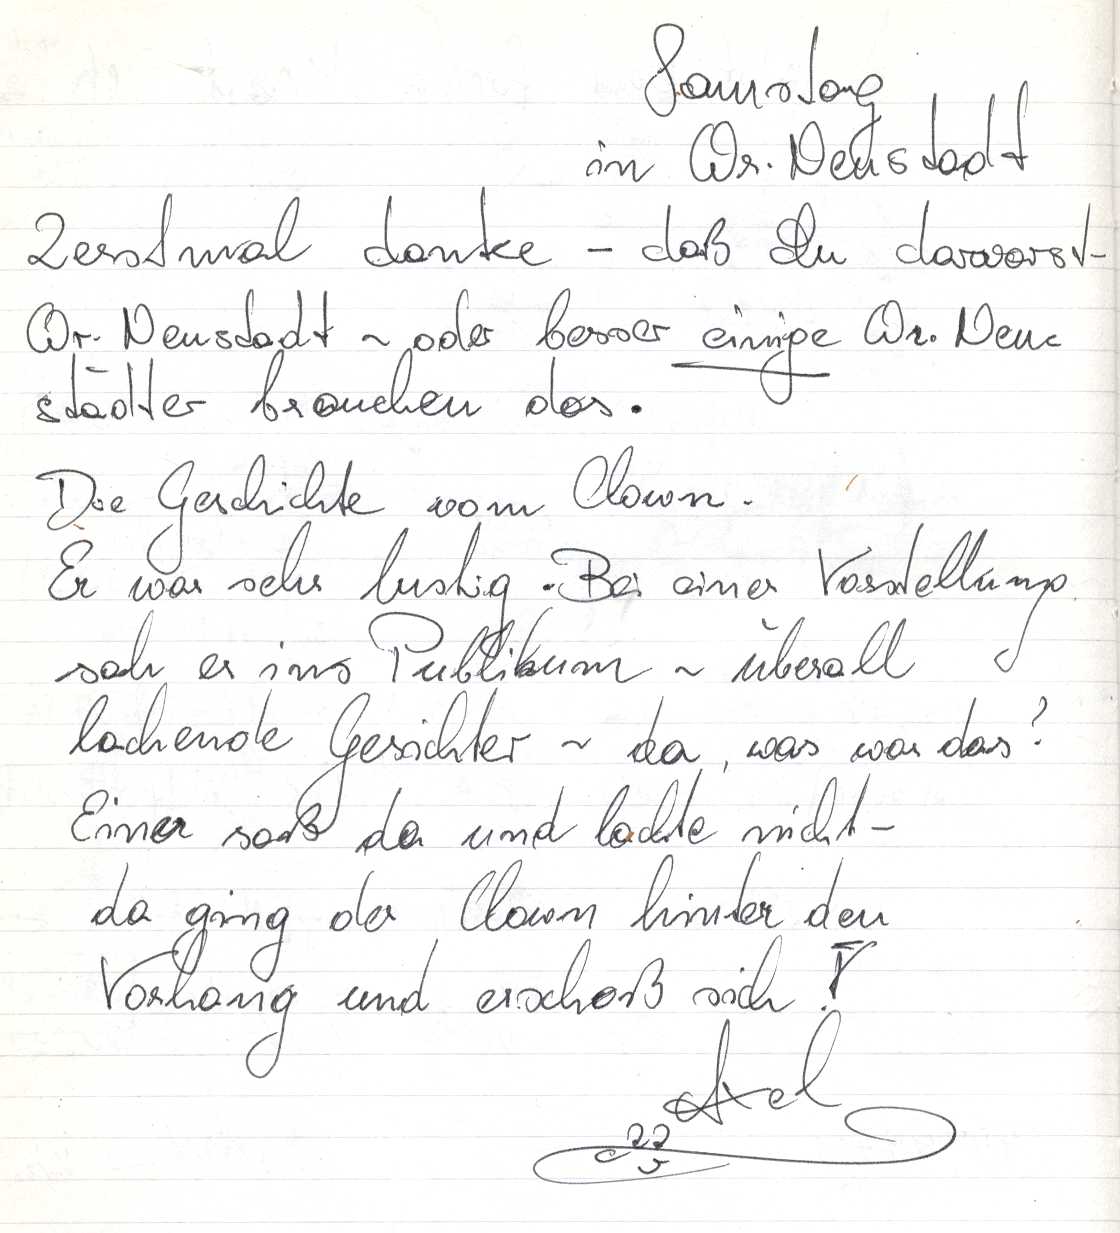 Samstag
in Wr. Neustadt
Zerstmal danke – daß Du dawarst –
Wr. Neustadt ~ oder besser einige Wr. Neu-
städter brauchen das.
Die Geschichte vom Clown.
Er war sehr lustig. Bei einer Vorstellung
sah er ins Publikum ~ überall
lachende Gesichter ~ da, was war das?
Einer saß da und lachte nicht –
da ging der Clown hinter den
Vorhang und erschoß sich!
Axel